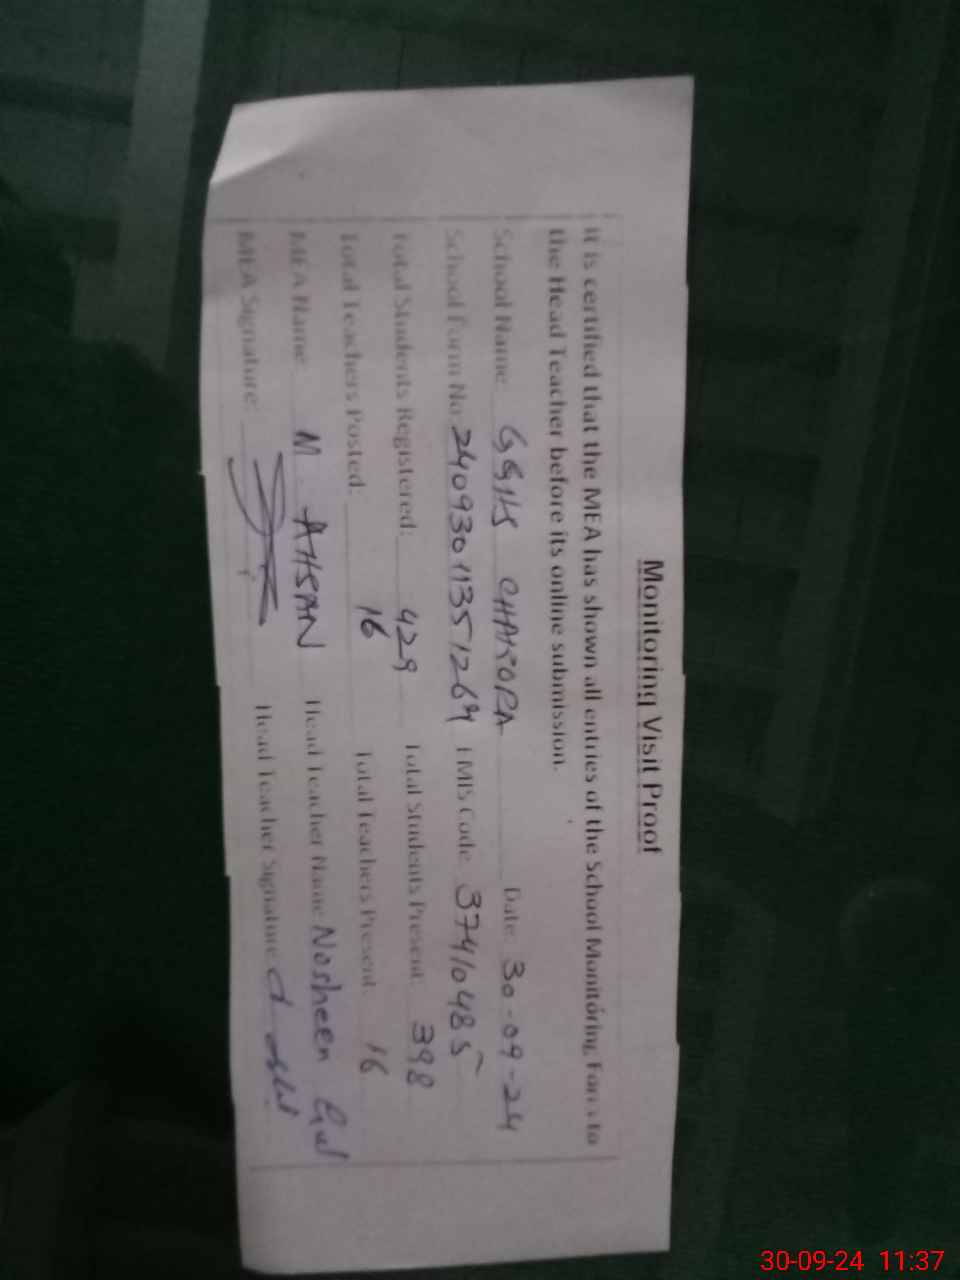 Monitoring Visit Proof
It is certified that the MEA has shown all entries of the School Monitoring Form to
the Head Teacher before its online submission.
School Name: GGHS CHAKORA Date: 30-09-24
School Form No: 2409301135 EMIS Code: 37410485
Total Students Registered: 429 Total Students Present: 398
Total Teachers Posted: 16 Total Teachers Present: 16
MEA Name: M. AHSAN Head Teacher Name Nosheen Gul
MEA Signature: Head Teacher Signature
30-09-24 11:37